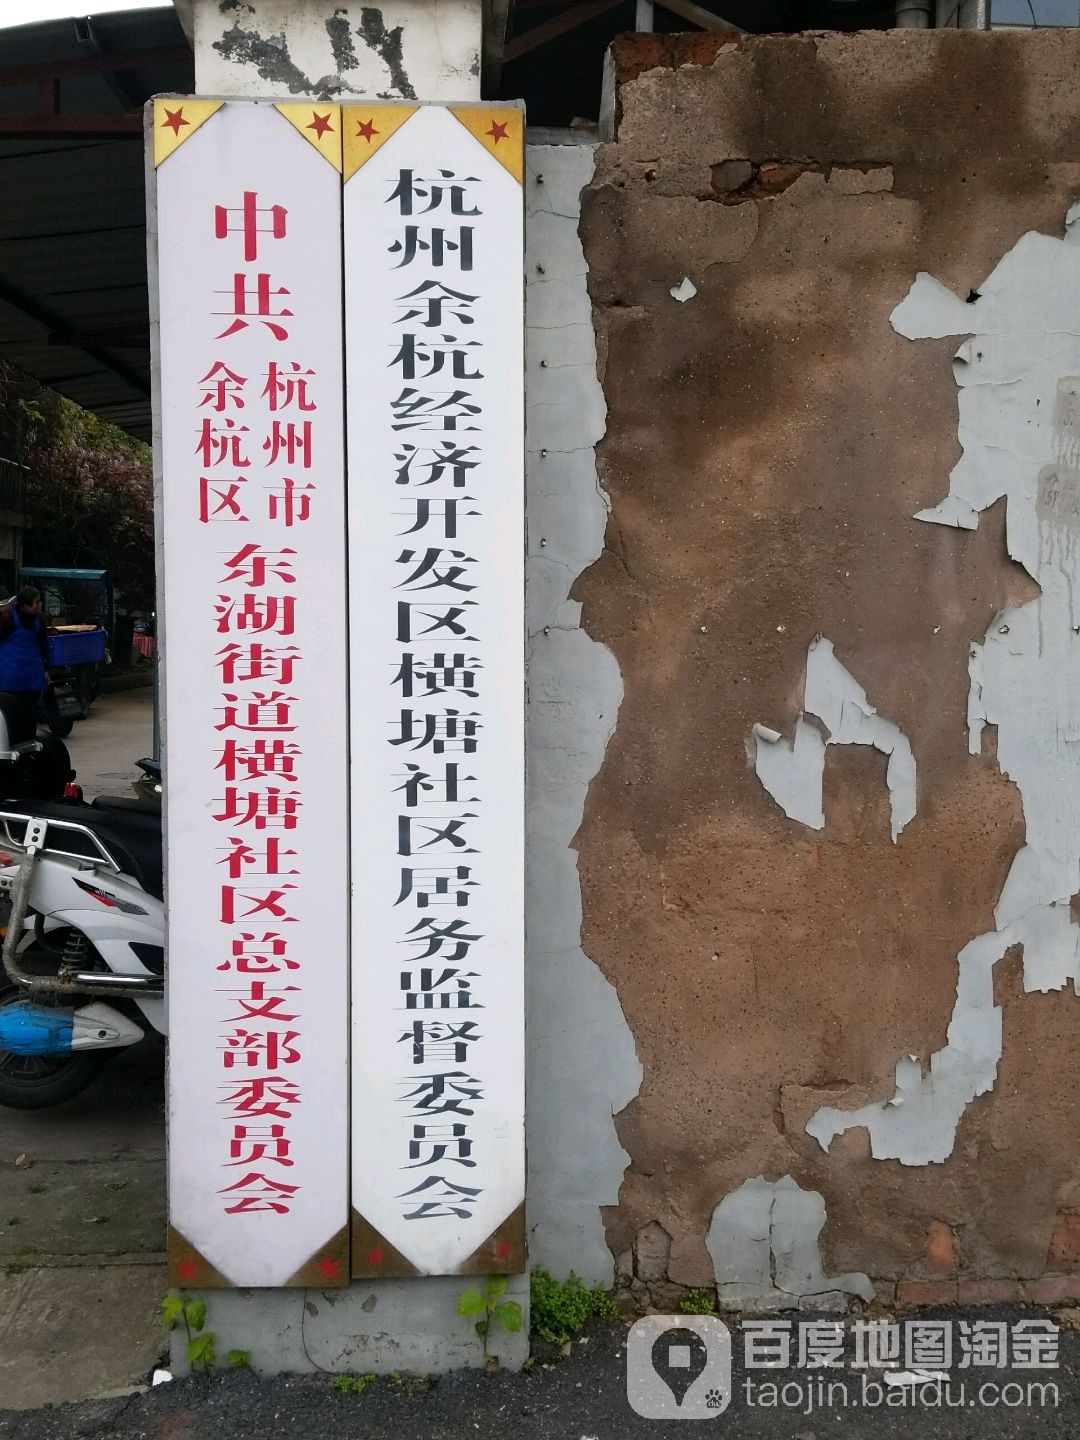 中共杭州市余杭区东湖街道横塘社区总支部委员会
杭州余杭经济开发区横塘社区居务监督委员会
百度地图淘金
taojin.baidu.com